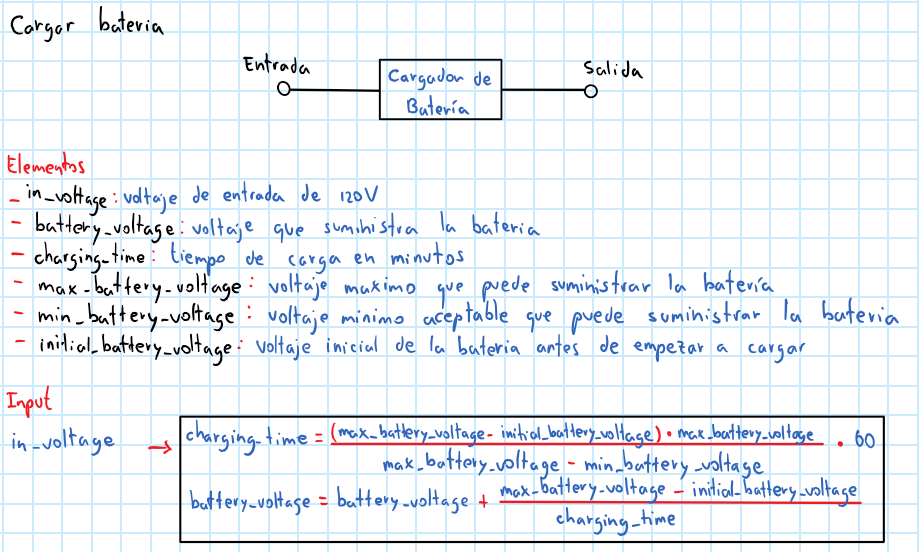 Cargar bateria
Entrada
Cargador de
Batería
Salida
Elementos
- in_voltage: voltaje de entrada de 120V
- battery_voltage: voltaje que suministra la bateria
- charging_time: tiempo de carga en minutos
- max_battery_voltage: voltaje maximo que puede suministrar la batería
- min_battery_voltage: voltaje minimo aceptable que puede suministrar la bateria
- initial_battery_voltage: voltaje inicial de la bateria antes de empezar a cargar
Input
in_voltage → charging_time = (max_battery_voltage - initial_battery_voltage) • max_battery_voltage / max_battery_voltage - min_battery_voltage • 60
battery_voltage = battery_voltage + max_battery_voltage - initial_battery_voltage / charging_time